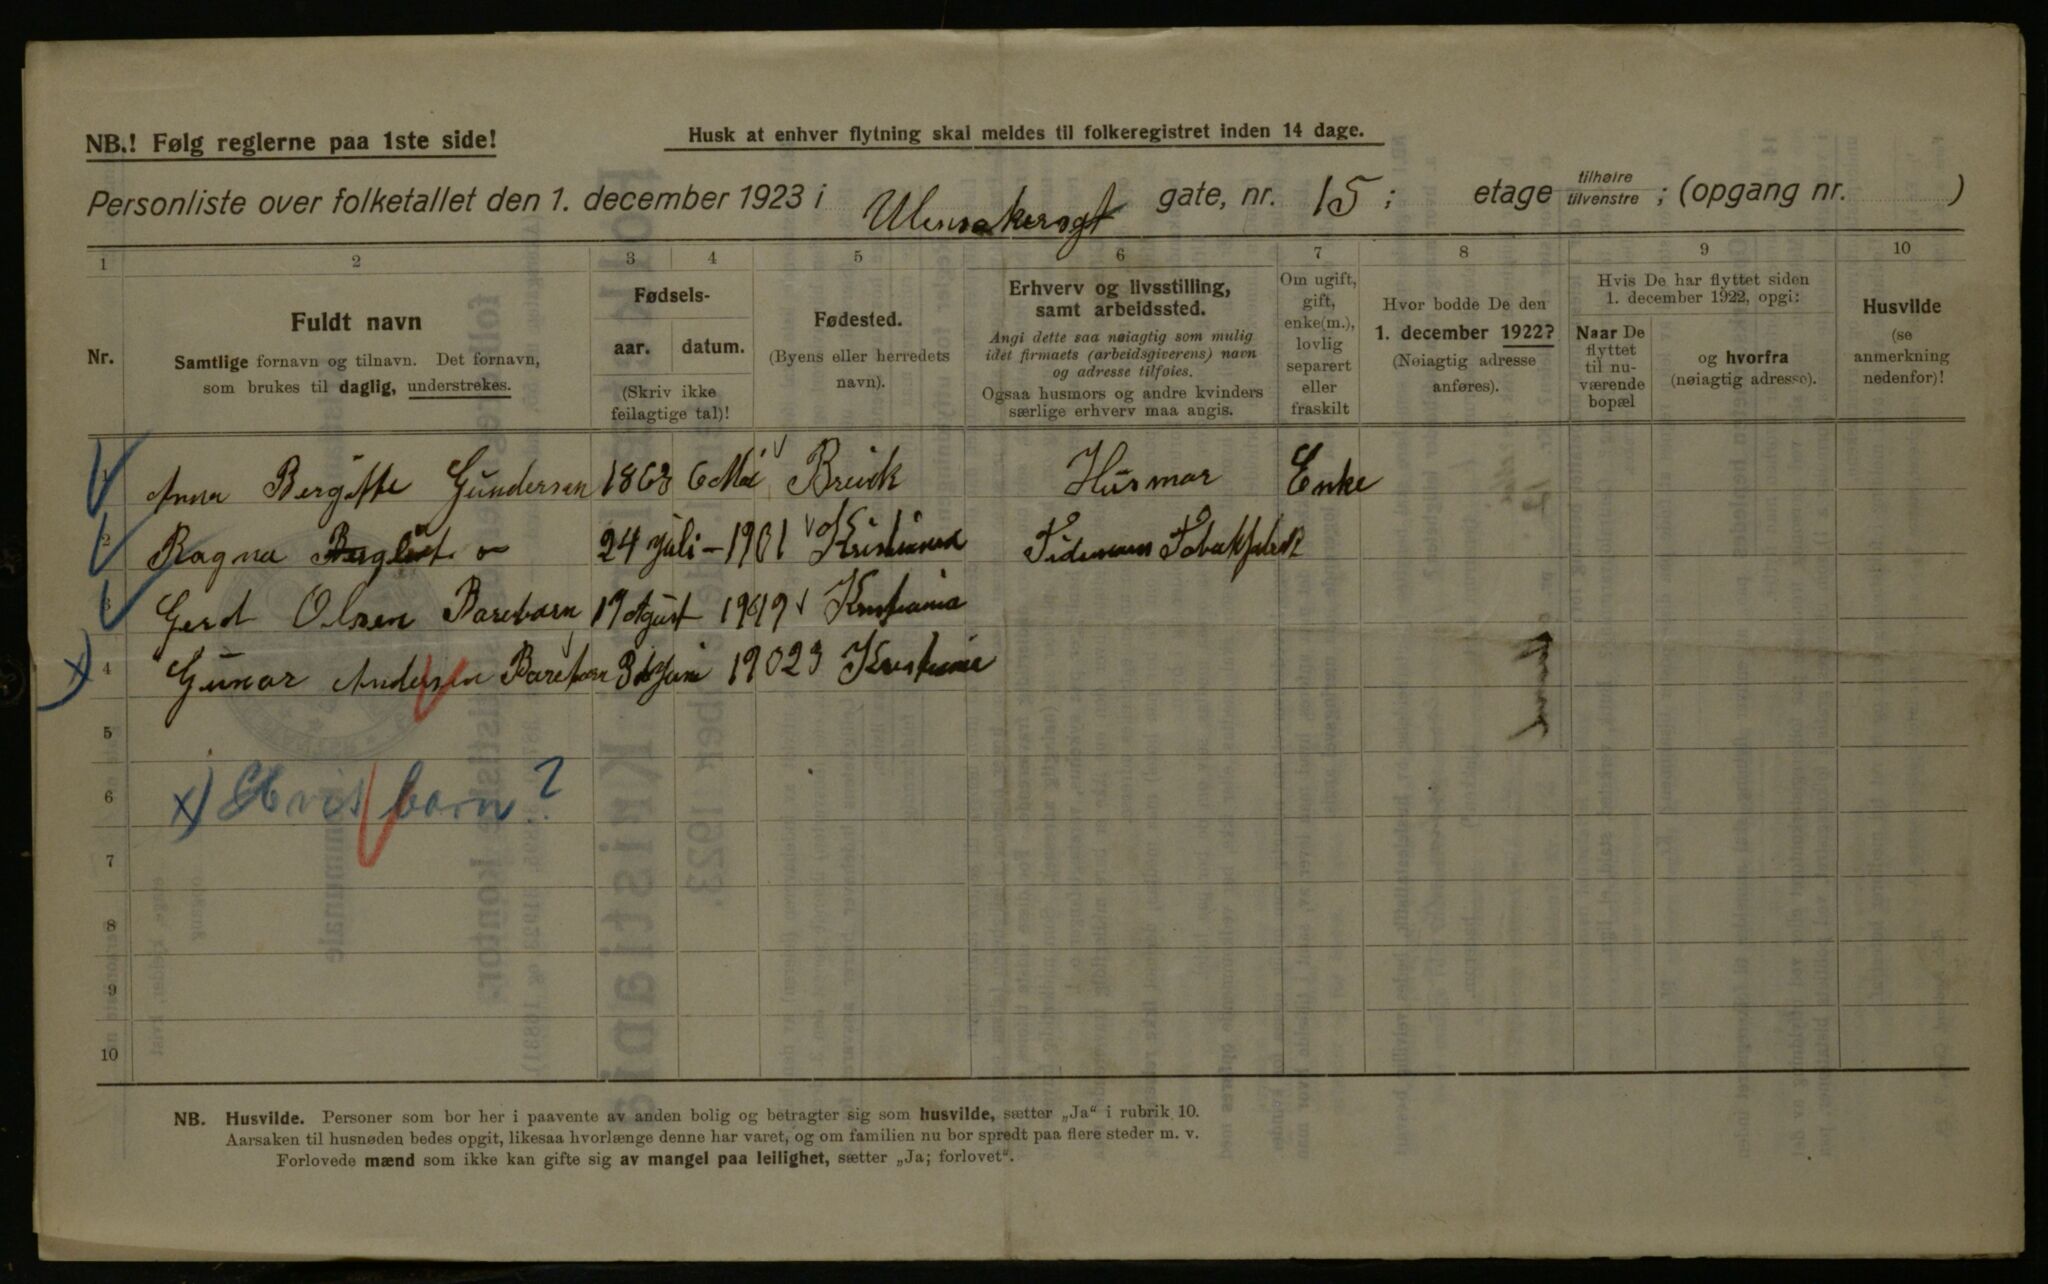 NB.! Følg reglerne paa 1ste side!
Husk at enhver flytning skal meldes til folkeregistret inden 14 dage.
Personliste over folketallet den 1. december 1923 i Ulensakergt gate, nr. 15; etage tilhøire tilvenstre; (opgang nr. )
1 2 3 4 5 6 7 8 9 10
Nr.
Fuldt navn
Samtlige fornavn og tilnavn. Det fornavn,
som brukes til daglig, understrekes.
Fødsels-
aar. datum.
(Skriv ikke
feilagtige tal)!
Fødested.
(Byens eller herredets
navn).
Erhverv og livsstilling,
samt arbeidssted.
Angi dette saa nøiagtig som mulig
idet firmaets (arbeidsgiverens) navn
og adresse tilføies.
Ogsaa husmors og andre kvinders
særlige erhverv maa angis.
Om ugift,
gift,
enke(m.),
lovlig
separert
eller
fraskilt
Hvor bodde De den
1. december 1922?
(Nøiagtig adresse
anføres).
Hvis De har flyttet siden
1. december 1922, opgi:
Naar De
flyttet
til nu-
værende
bopæl
og hvorfra
(nøiagtig adresse).
Husvilde
(se
anmerkning
nedenfor)!
1 Anna Bergitte Gundersen 1863 6 Mai Brevik Husmor Enke
2 Ragna 24 juli - 1901 Kristiania Tidemans Tobakfabrik
3 Gerd Olsen Barebarn 17 August 1919 Kristiania
4 Gunar Andersen Barebarn Juni 1923 Kristiania
5
6 x) Hvis barn?
7
8
9
10
NB. Husvilde. Personer som bor her i paavente av anden bolig og betragter sig som husvilde, sætter „Ja“ i rubrik 10.
Aarsaken til husnøden bedes opgit, likesaa hvorlænge denne har varet, og om familien nu bor spredt paa flere steder m. v.
Forlovede mænd som ikke kan gifte sig av mangel paa leilighet, sætter „Ja; forlovet“.